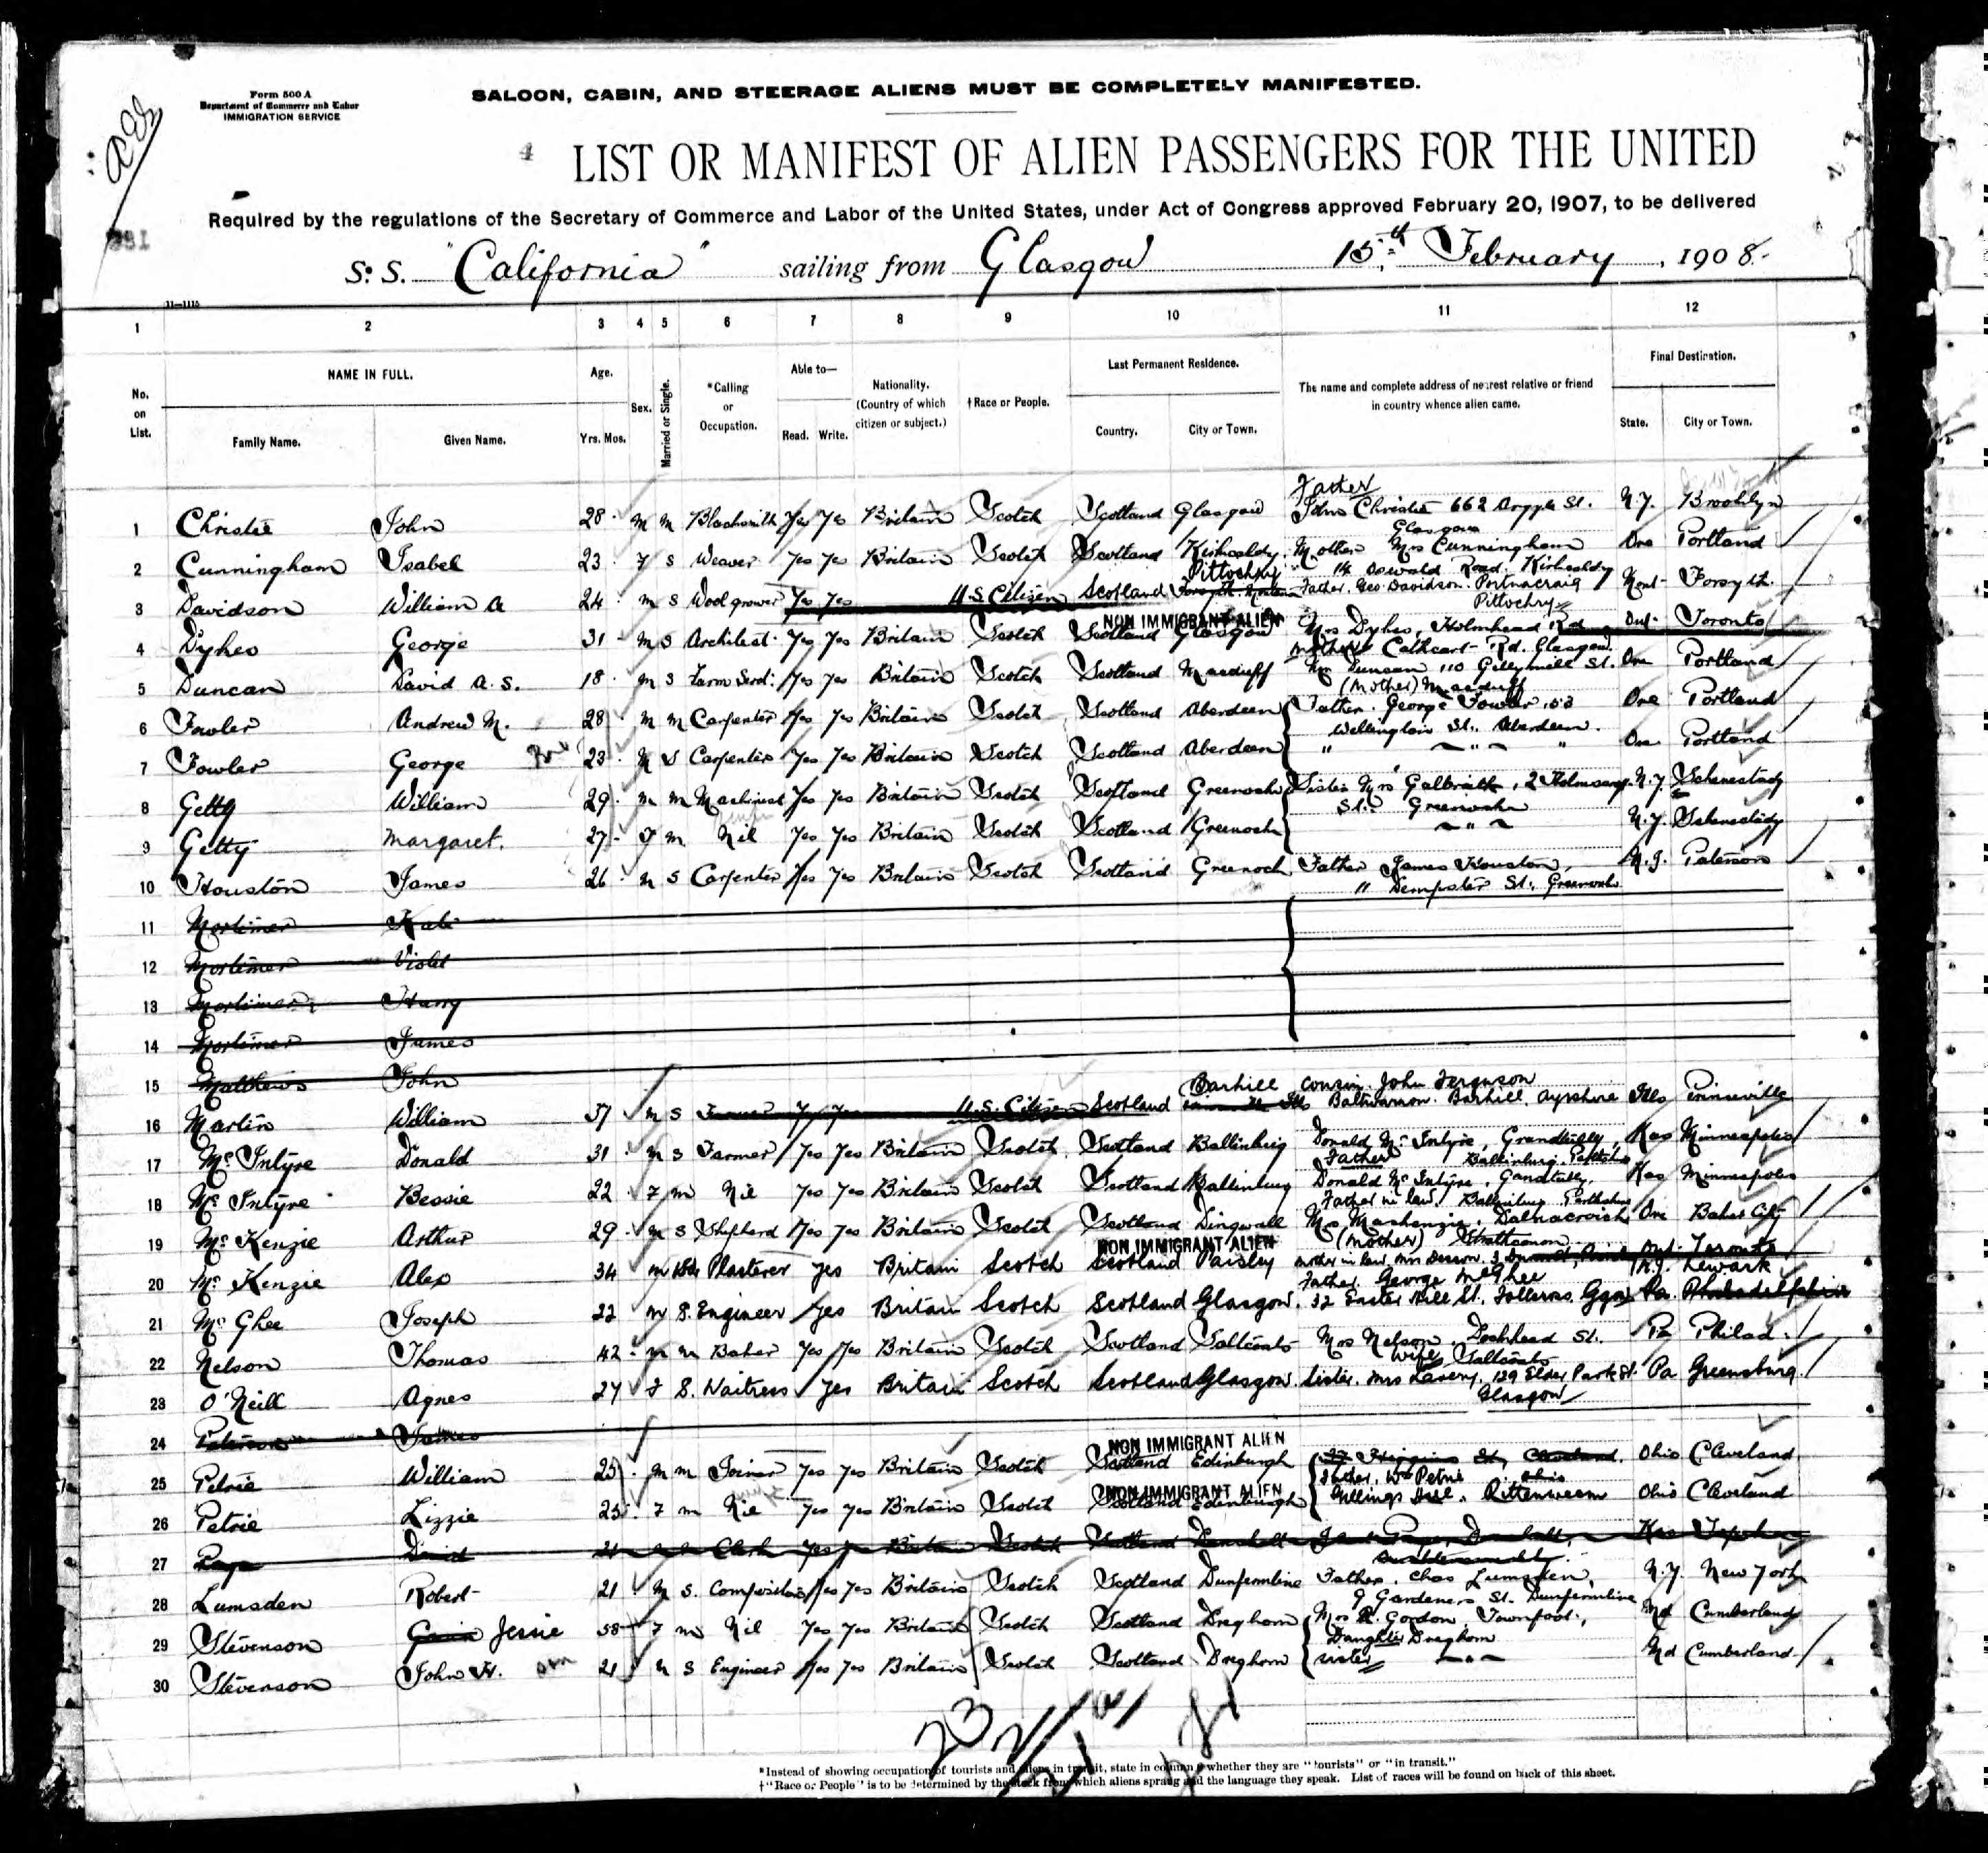 Form 500 A
Department of Commerce and Labor
IMMIGRATION SERVICE
SALOON, CABIN, AND STEERAGE ALIENS MUST BE COMPLETELY MANIFESTED.
4 LIST OR MANIFEST OF ALIEN PASSENGERS FOR THE UNITED
Required by the regulations of the Secretary of Commerce and Labor of the United States, under Act of Congress approved February 20, 1907, to be delivered
S.S. "California" sailing from Glasgow 15th February, 1908.
11—1115
1 2 3 4 5 6 7 8 9 10 11 12
No. on List.
NAME IN FULL.
Family Name. Given Name.
Age.
Yrs. Mos.
Sex.
Married or Single.
*Calling or Occupation.
Able to—
Read. Write.
Nationality. (Country of which citizen or subject.)
†Race or People.
Last Permanent Residence.
Country. City or Town.
The name and complete address of nearest relative or friend in country whence alien came.
Final Destination.
State. City or Town.
Father
1 Christie John 28 m m Blacksmith Yes Yes Britain Scotch Scotland Glasgow John Christie 662 Argyle St. N.Y. Brooklyn
Glasgow
2 Cunningham Isabel 23 f s Weaver Yes Yes Britain Scotch Scotland Kirkcaldy Mother Mrs Cunningham Ore Portland
Pittochry " 14 Oswald Road, Kirkcaldy
3 Davidson William A 24 m s Wool grower Yes Yes U.S. Citizen Scotland Father. Geo Davidson. Portnacraig Mont Forsyth.
Pittochry
NON IMMIGRANT ALIEN
4 Dykes George 31 m s Architect Yes Yes Britain Scotch Scotland Glasgow Mrs Dykes, Holmhead Rd Ont. Toronto
mother Cathcart Rd. Glasgow
5 Duncan David A. S. 18 m s Farm Servt. Yes Yes Britain Scotch Scotland Macduff Mrs Duncan 110 Gellymill St. Ore Portland
(Mother) Macduff
6 Fowler Andrew M. 28 m m Carpenter Yes Yes Britain Scotch Scotland Aberdeen Father. George Fowler Ore Portland
Wellington St., Aberdeen.
7 Fowler George 23 m s Carpenter Yes Yes Britain Scotch Scotland Aberdeen " " " Ore Portland
8 Getty William 29 m m Machinist Yes Yes Britain Scotch Scotland Greenock Sister Mrs Galbraith, 2 N.Y. Schenectady
St. Greenock
9 Getty Margaret. 27 f m Nil Yes Yes Britain Scotch Scotland Greenock " N.Y. Schenectady
10 Houston James 26 m s Carpenter Yes Yes Britain Scotch Scotland Greenock Father James Houston, N.J. Paterson
11 Dempster St., Greenock
11 Mortimer Kate
12 Mortimer Violet
13 Mortimer Harry
14 Mortimer James
15 Matthews John
Barhill cousin. John Ferguson
16 Martin William 37 m s Farmer Yes U.S. Citizen Scotland Barhill, Ayrshire Ills
17 McIntyre Donald 31 m s Farmer Yes Yes Britain Scotch Scotland Ballinluig Donald McIntyre, Grandtully, Kas Minneapolis
Father Ballinluig, Perthshire
18 McIntyre Bessie 22 f m Nil Yes Yes Britain Scotch Scotland Ballinluig Donald McIntyre, Gandtully, Kas Minneapolis
Father in law Ballinluig Perthshire
19 McKenzie Arthur 29 m s Shepherd Yes Yes Britain Scotch Scotland Dingwall Mrs Mackenzie, Dalnacroich Ore Baker City
(Mother) Strathconon
NON IMMIGRANT ALIEN
20 McKenzie Alex 34 m Plasterer Yes Britain Scotch Scotland Paisley mother in law, Mrs Ont. Toronto
N.J. Newark
Father. George McGhee
21 McGhee Joseph 22 m S. Engineer Yes Britain Scotch Scotland Glasgow. 32 Easter Hill St. Tollcross. Ggow Pa. Philadelphia
22 Nelson Thomas 42 m m Baker Yes Yes Britain Scotch Scotland Saltcoats Mrs Nelson, Dockhead St. Pa Philad.
Wife Saltcoats
23 O'Neill Agnes 27 f S. Waitress Yes Britain Scotch Scotland Glasgow. Sister. Mrs Lavery, 129 Elder Park St. Pa Greensburg.
Glasgow
24 Peterson James
NON IMMIGRANT ALIEN
25 Petrie William 25 m m Joiner Yes Yes Britain Scotch Scotland Edinburgh Higgins St., Cleveland, Ohio Ohio Cleveland
Father. Wm Petrie
NON IMMIGRANT ALIEN
26 Petrie Lizzie 25 f m Nil Yes Yes Britain Scotch Scotland Edinburgh Pittenweem Ohio Cleveland
27 Page David 21 Clerk Yes Britain Scotch Scotland Kas Topeka
28 Lumsden Robert 21 m s. Compositor Yes Yes Britain Scotch Scotland Dunfermline Father, Chas Lumsden, N.Y. New York
9 Gardeners St. Dunfermline
29 Stevenson Jessie 58 f m Nil Yes Yes Britain Scotch Scotland Dreghorn Mrs R. Gordon, Townfoot, Md Cumberland
Daughter Dreghorn
30 Stevenson John H. son 21 m s Engineer Yes Yes Britain Scotch Scotland Dreghorn sister " Md Cumberland
23
*Instead of showing occupation of tourists and aliens in transit, state in column 6 whether they are "tourists" or "in transit."
†"Race or People" is to be determined by the stock from which aliens sprang and the language they speak. List of races will be found on back of this sheet.